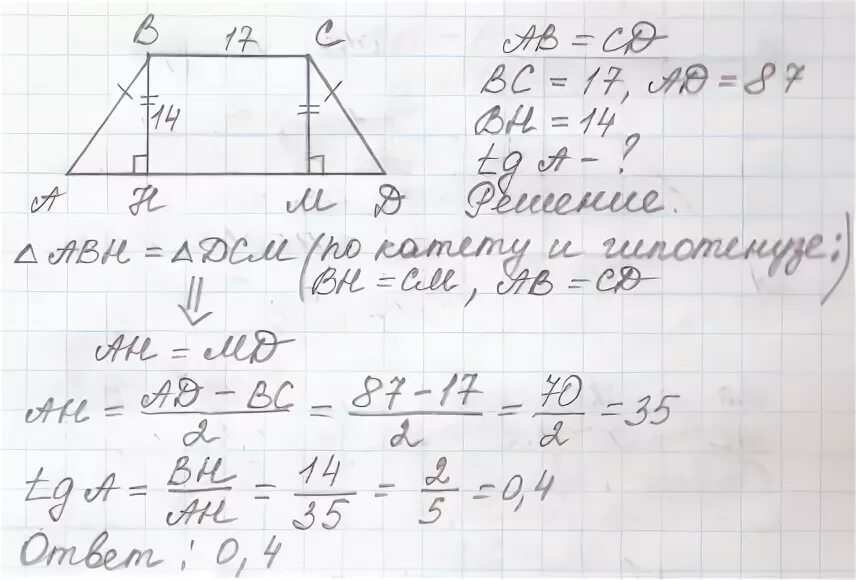 B 17 C
14
A H M D
AB = CD
BC = 17, AD = 87
BH = 14
tg A - ?
Решение.
△ ABH = △ DCM (по катету и гипотенузе:
BH = CM, AB = CD)
⇓
AH = MD
AH = (AD - BC)/2 = (87 - 17)/2 = 70/2 = 35
tg A = BH/AH = 14/35 = 2/5 = 0,4
Ответ: 0,4